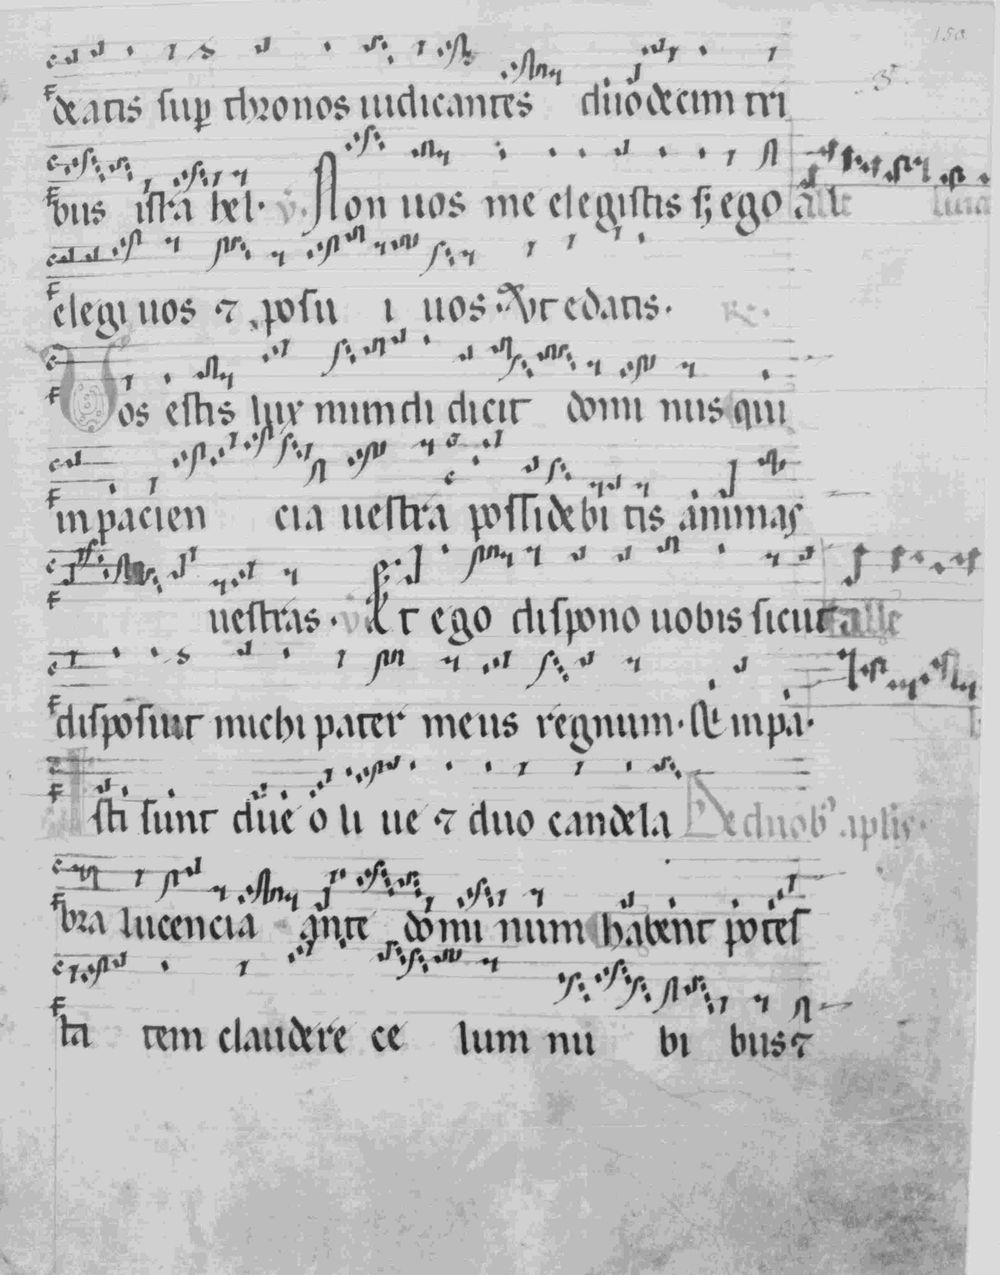 150
deatis sup thronos iudicantes duodecim tri
bus isra hel. V. Non uos me elegistis s; ego alle luia
elegi uos ⁊ posu i uos. Ut edatis. R.
Vos estis lux mundi dicit domi nus qui
in pacien cia uestra possidebi tis animas
uestras. V. Et ego dispono uobis sicut alle
disposuit michi pater meus regnum. Et in pa.
Isti sunt due o li ue ⁊ duo candela De duob' aplis.
bra lucencia ante domi num habent potes
ta tem claudere ce lum nu bi bus ⁊